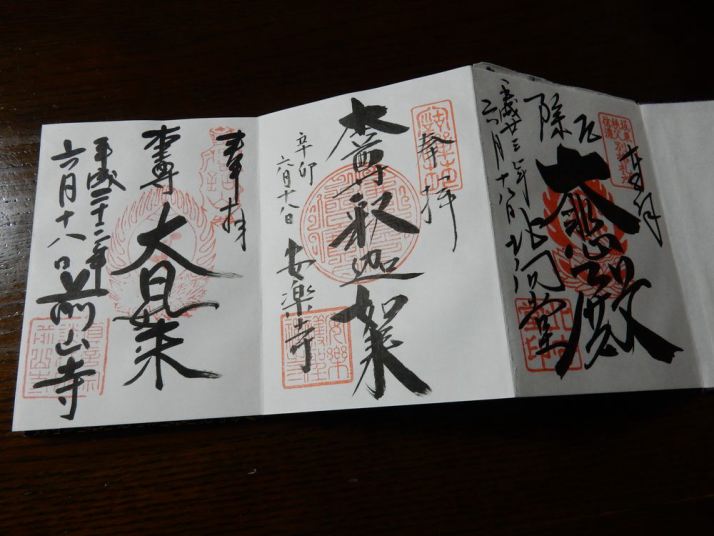 奉拝
厄除
大悲殿
平成廿三年
六月十八日
奉拝
本尊釈迦如来
辛卯
六月十八日
安楽寺
奉拝
本尊
大日如来
平成二十三年
六月十八日
前山寺